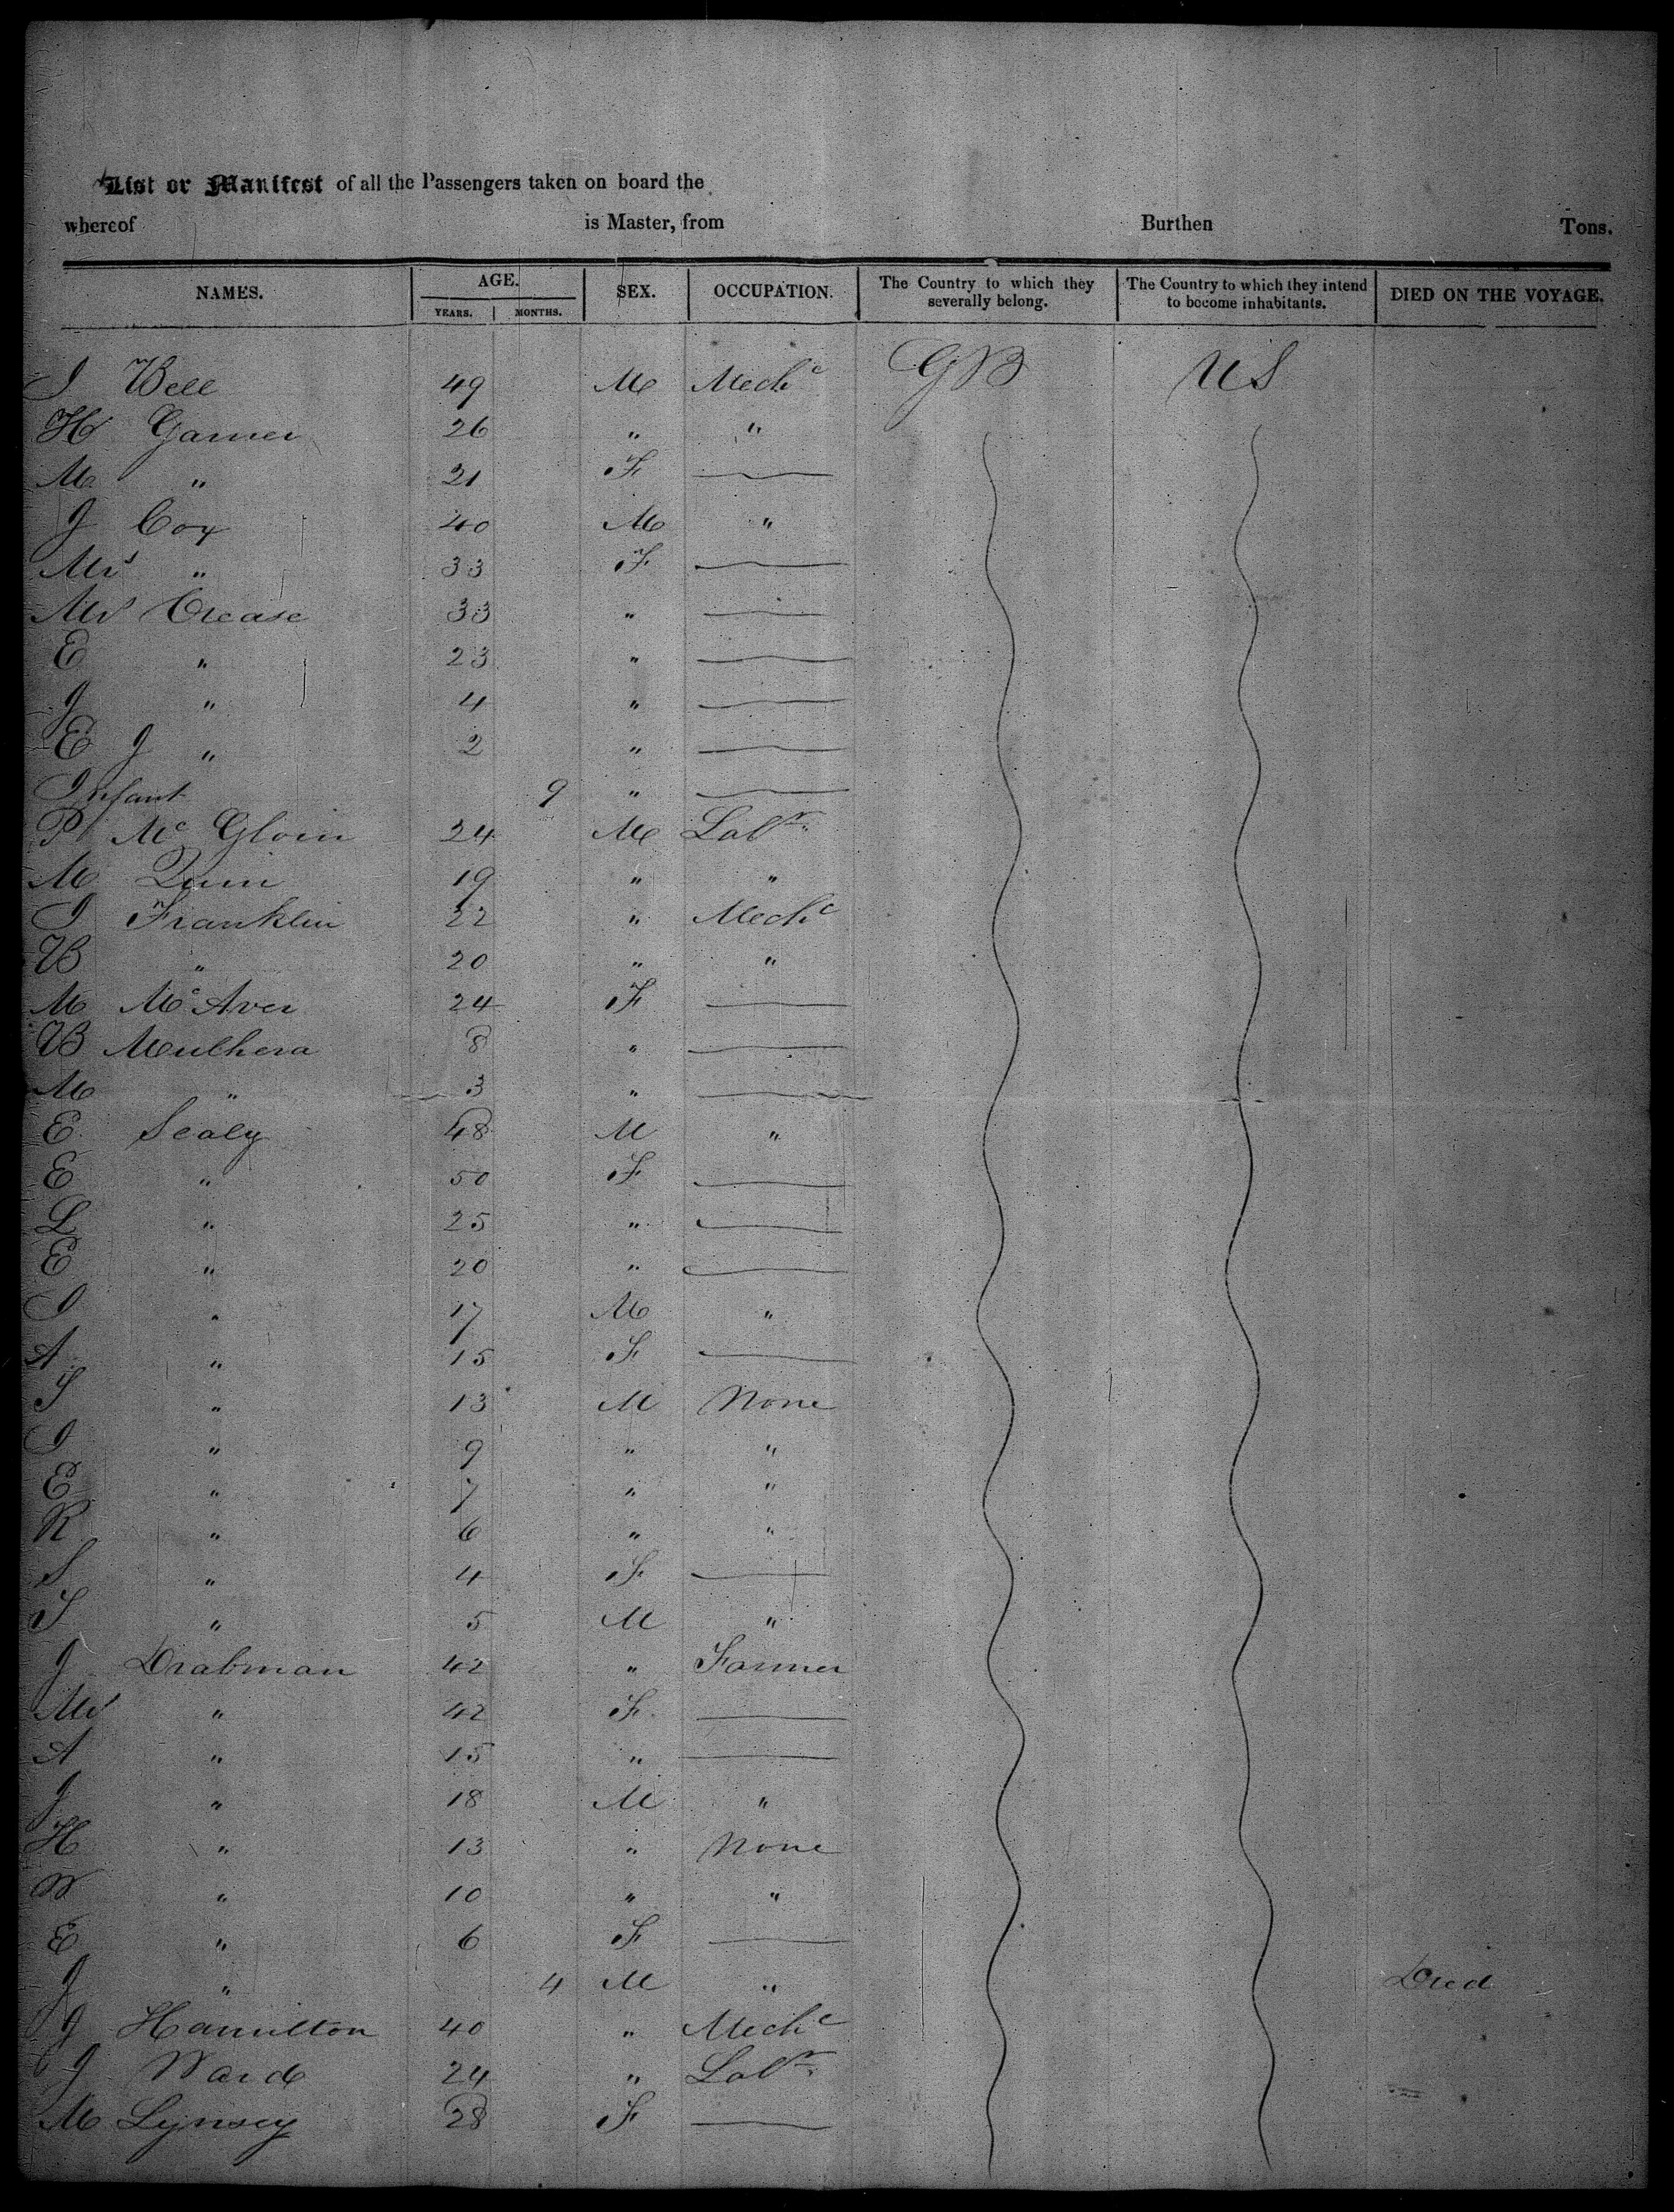 List or Manifest of all the Passengers taken on board the
whereof is Master, from Burthen Tons.
NAMES. AGE. SEX. OCCUPATION. The Country to which they severally belong. The Country to which they intend to become inhabitants. DIED ON THE VOYAGE.
YEARS. MONTHS.
I Bell 49 M Mechc GB US
H Garner 26 " "
M " 21 F
J Cox 40 M "
Mrs " 33 F
Mrs Crease 33 "
E " 23 "
J " 4 "
E J " 2 "
Infant 9 "
P Mc Gloin 24 M Labr
M Quin 19 " "
I Franklin 22 " Mechc
B " 20 " "
M Mc Aver 24 F
B Mulhera 8 "
M " 3 "
E Sealy 48 M "
E " 50 F
L " 25 "
E " 20 "
I " 17 M "
A " 15 F
S " 13 M None
I " 9 " "
E " 7 " "
R " 6 " "
S " 4 F
S " 5 M "
J Drabman 42 " Farmer
Mrs " 42 F
A " 15 "
J " 18 M "
H " 13 " None
W " 10 " "
E " 6 F
J " 4 M " Died
J Hamilton 40 " Mechc
J Ward 24 " Labr
M Lynsey 28 F